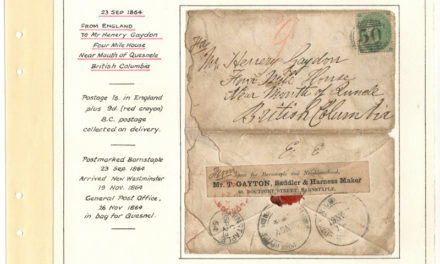 23 SEP 1864
FROM ENGLAND
TO MR HENERY GAYDON
FOUR MILE HOUSE
NEAR MOUTH OF QUESNELE
BRITISH COLUMBIA
POSTAGE 1S. IN ENGLAND
PLUS 9D (RED CRAYON)
B.C. POSTAGE
COLLECTED ON DELIVERY.
POSTMARKED BARNSTAPLE
23 SEP 1864
ARRIVED NEW WESTMINSTER
19 NOV. 1864
GENERAL POST OFFICE,
26 NOV 1864
IN BAG FOR QUESNEL.
9
50
Mr. Henery Gaydon
Four Mile House
Near Mouth of
British Columbia
for Barnstaple and Neighbourhood,
Mr. T. GAYTON, Saddler & Harness Maker
BOUTPORT STREET, BARNSTAPLE.